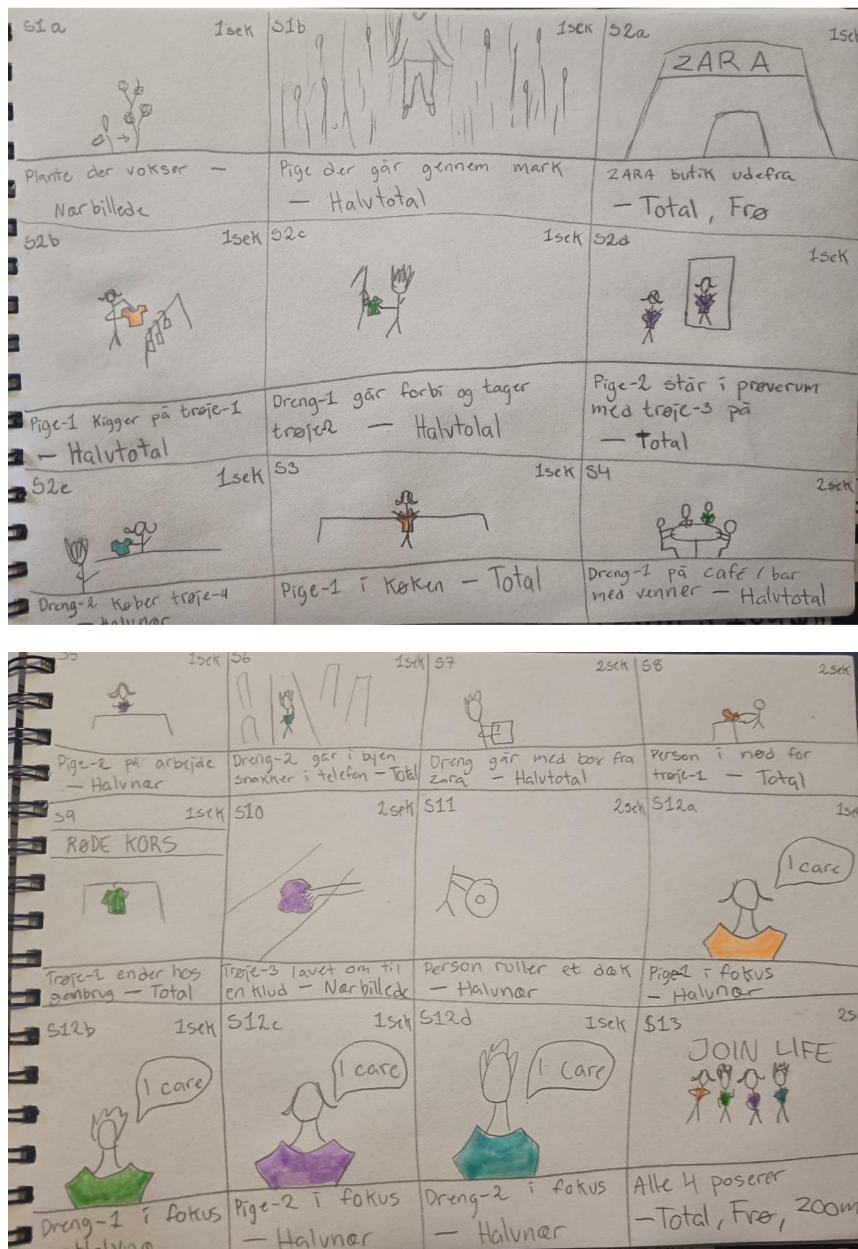 S1a 1sek
Plante der vokser —
Nærbillede
S1b 1sek
Pige der går gennem mark
— Halvtotal
S2a 1sek
ZARA
ZARA butik udefra
— Total, Frø
S2b 1sek
Pige-1 kigger på trøje-1
— Halvtotal
S2c 1sek
Dreng-1 går forbi og tager
trøje2 — Halvtotal
S2d 1sek
Pige-2 står i prøverum
med trøje-3 på
— Total
S2e 1sek
Dreng-2 køber trøje-4
— Halvnær
S3 1sek
Pige-1 i køken — Total
S4 2sek
Dreng-1 på café / bar
med venner — Halvtotal
S5 1sek
Pige-2 på arbejde
— Halvnær
S6 1sek
Dreng-2 går i byen
snakker i telefon — Total
S7 2sek
Z
Dreng går med box fra
zara — Halvtotal
S8 2sek
Person i nød for
trøje-1 — Total
S9 1sek
RØDE KORS
Trøje-2 ender hos
genbrug — Total
S10 2sek
Trøje-3 lavet om til
en klud — Nærbillede
S11 2sek
Person ruller et dæk
— Halvnær
S12a 1sek
I care
Pige1 i fokus
— Halvnær
S12b 1sek
I care
Dreng-1 i fokus
S12c 1sek
I care
Pige-2 i fokus
— Halvnær
S12d 1sek
I care
Dreng-2 i fokus
— Halvnær
S13 2s
JOIN LIFE
Alle 4 poserer
— Total, Frø, zoom